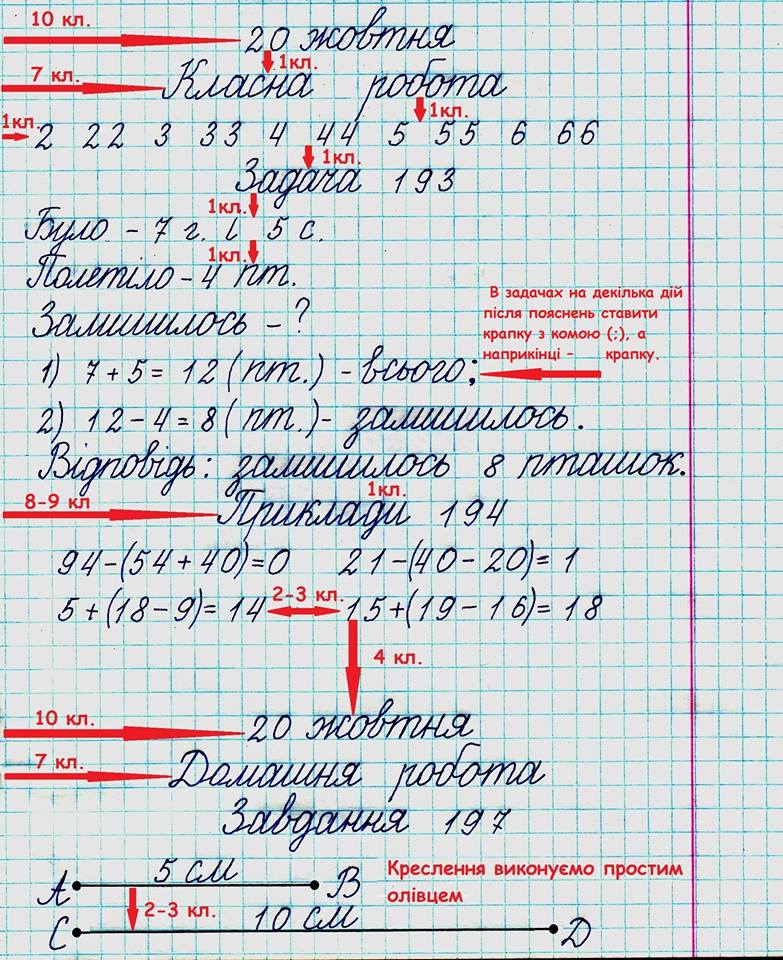 10 кл. 20 жовтня
1кл.
7 кл. Класна робота
1кл.
1кл. 2 22 3 33 4 44 5 55 6 66
1кл.
Задача 193
1кл.
Було – 7 г. і 5 с.
1кл.
Полетіло – 4 пт.
Залишилось – ?
В задачах на декілька дій
після пояснень ставити
крапку з комою (;), а
наприкінці – крапку.
1) 7 + 5 = 12 (пт.) – всього;
2) 12 – 4 = 8 (пт.) – залишилось.
Відповідь: залишилось 8 пташок.
1кл.
8-9 кл Приклади 194
94 – (54 + 40) = 0 21 – (40 – 20) = 1
5 + (18 – 9) = 14 2-3 кл. 15 + (19 – 16) = 18
4 кл.
10 кл. 20 жовтня
7 кл. Домашня робота
Завдання 197
5 см
A B
Креслення виконуємо простим
олівцем
2-3 кл.
10 см
C D